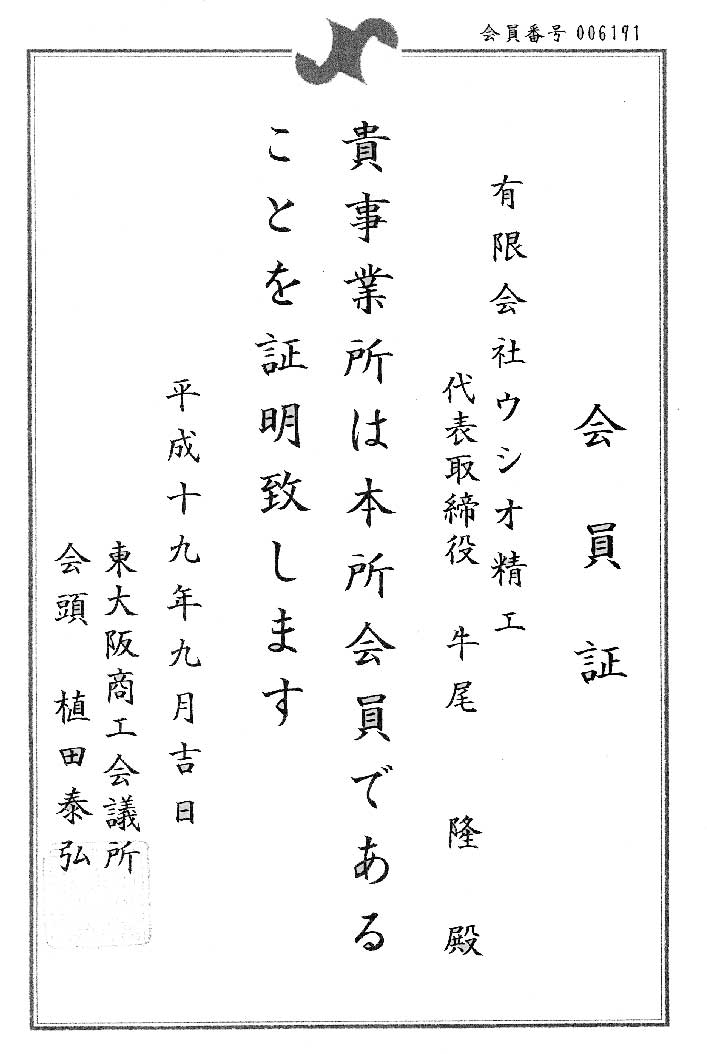 会員番号 006191
会員証
有限会社ウシオ精工
代表取締役 牛尾 隆 殿
貴事業所は本所会員である
ことを証明致します
平成十九年九月吉日
東大阪商工会議所
会頭 植田泰弘